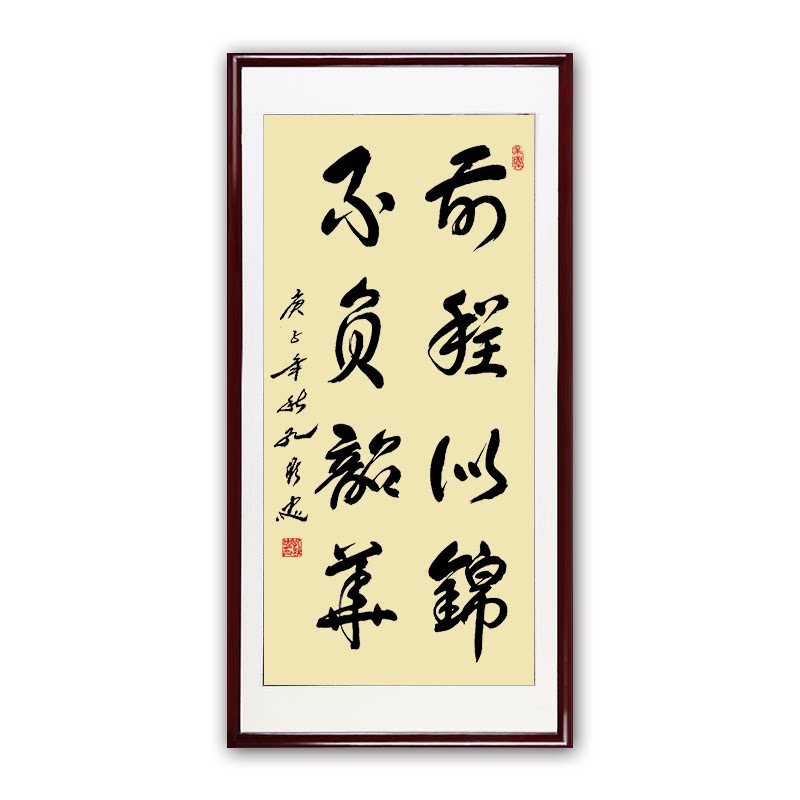 前程似錦
不負韶華
庚子年秋孔